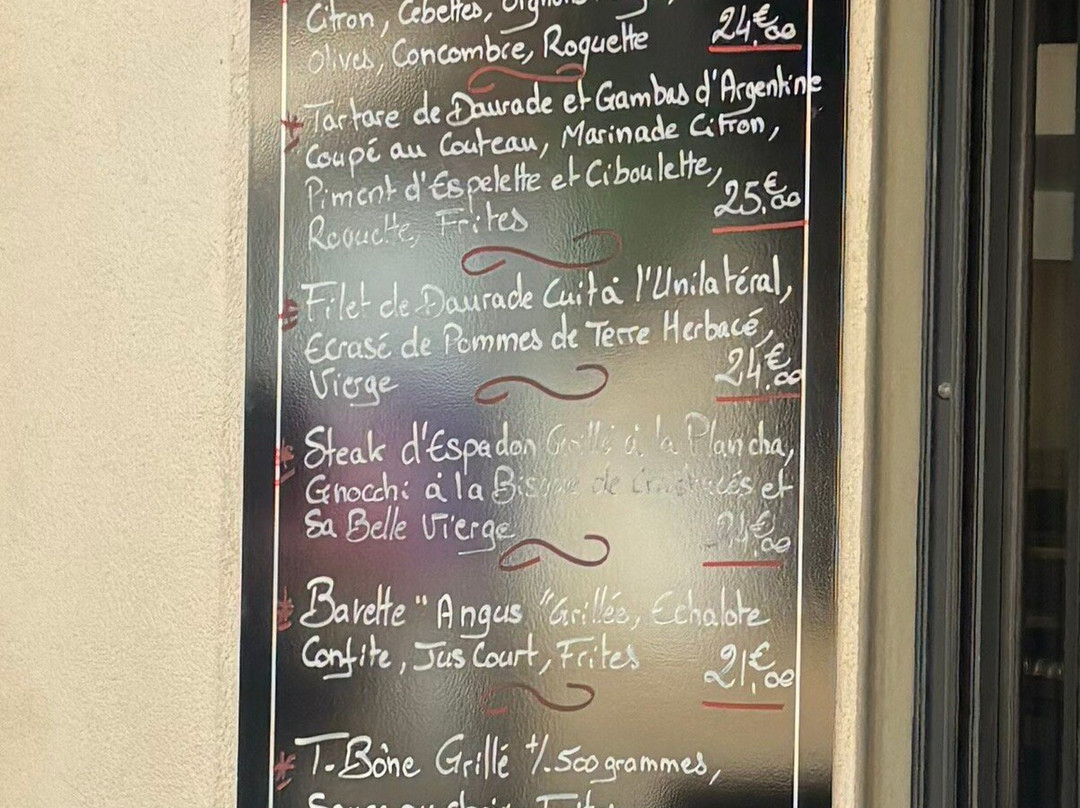 Citron, Cebettes,
24,€00
Olives, Concombre, Roquette
Tartare de Daurade et Gambas d'Argentine
Coupé au Couteau, Marinade Citron,
Piment d'Espelette et Ciboulette,
25,€00
Roquette, Frites
Filet de Daurade Cuit à l'Unilatéral,
Ecrasé de Pommes de Terre Herbacé,
Vierge
24,€00
Steak d'Espadon Grillé à la Plancha,
Gnocchi à la Bisque de Crustacés et
Sa Belle Vierge
24,€00
Bavette "Angus "Grillée, Echalote
Confite, Jus Court, Frites
21,€00
T-Bône Grillé +/- 500grammes,